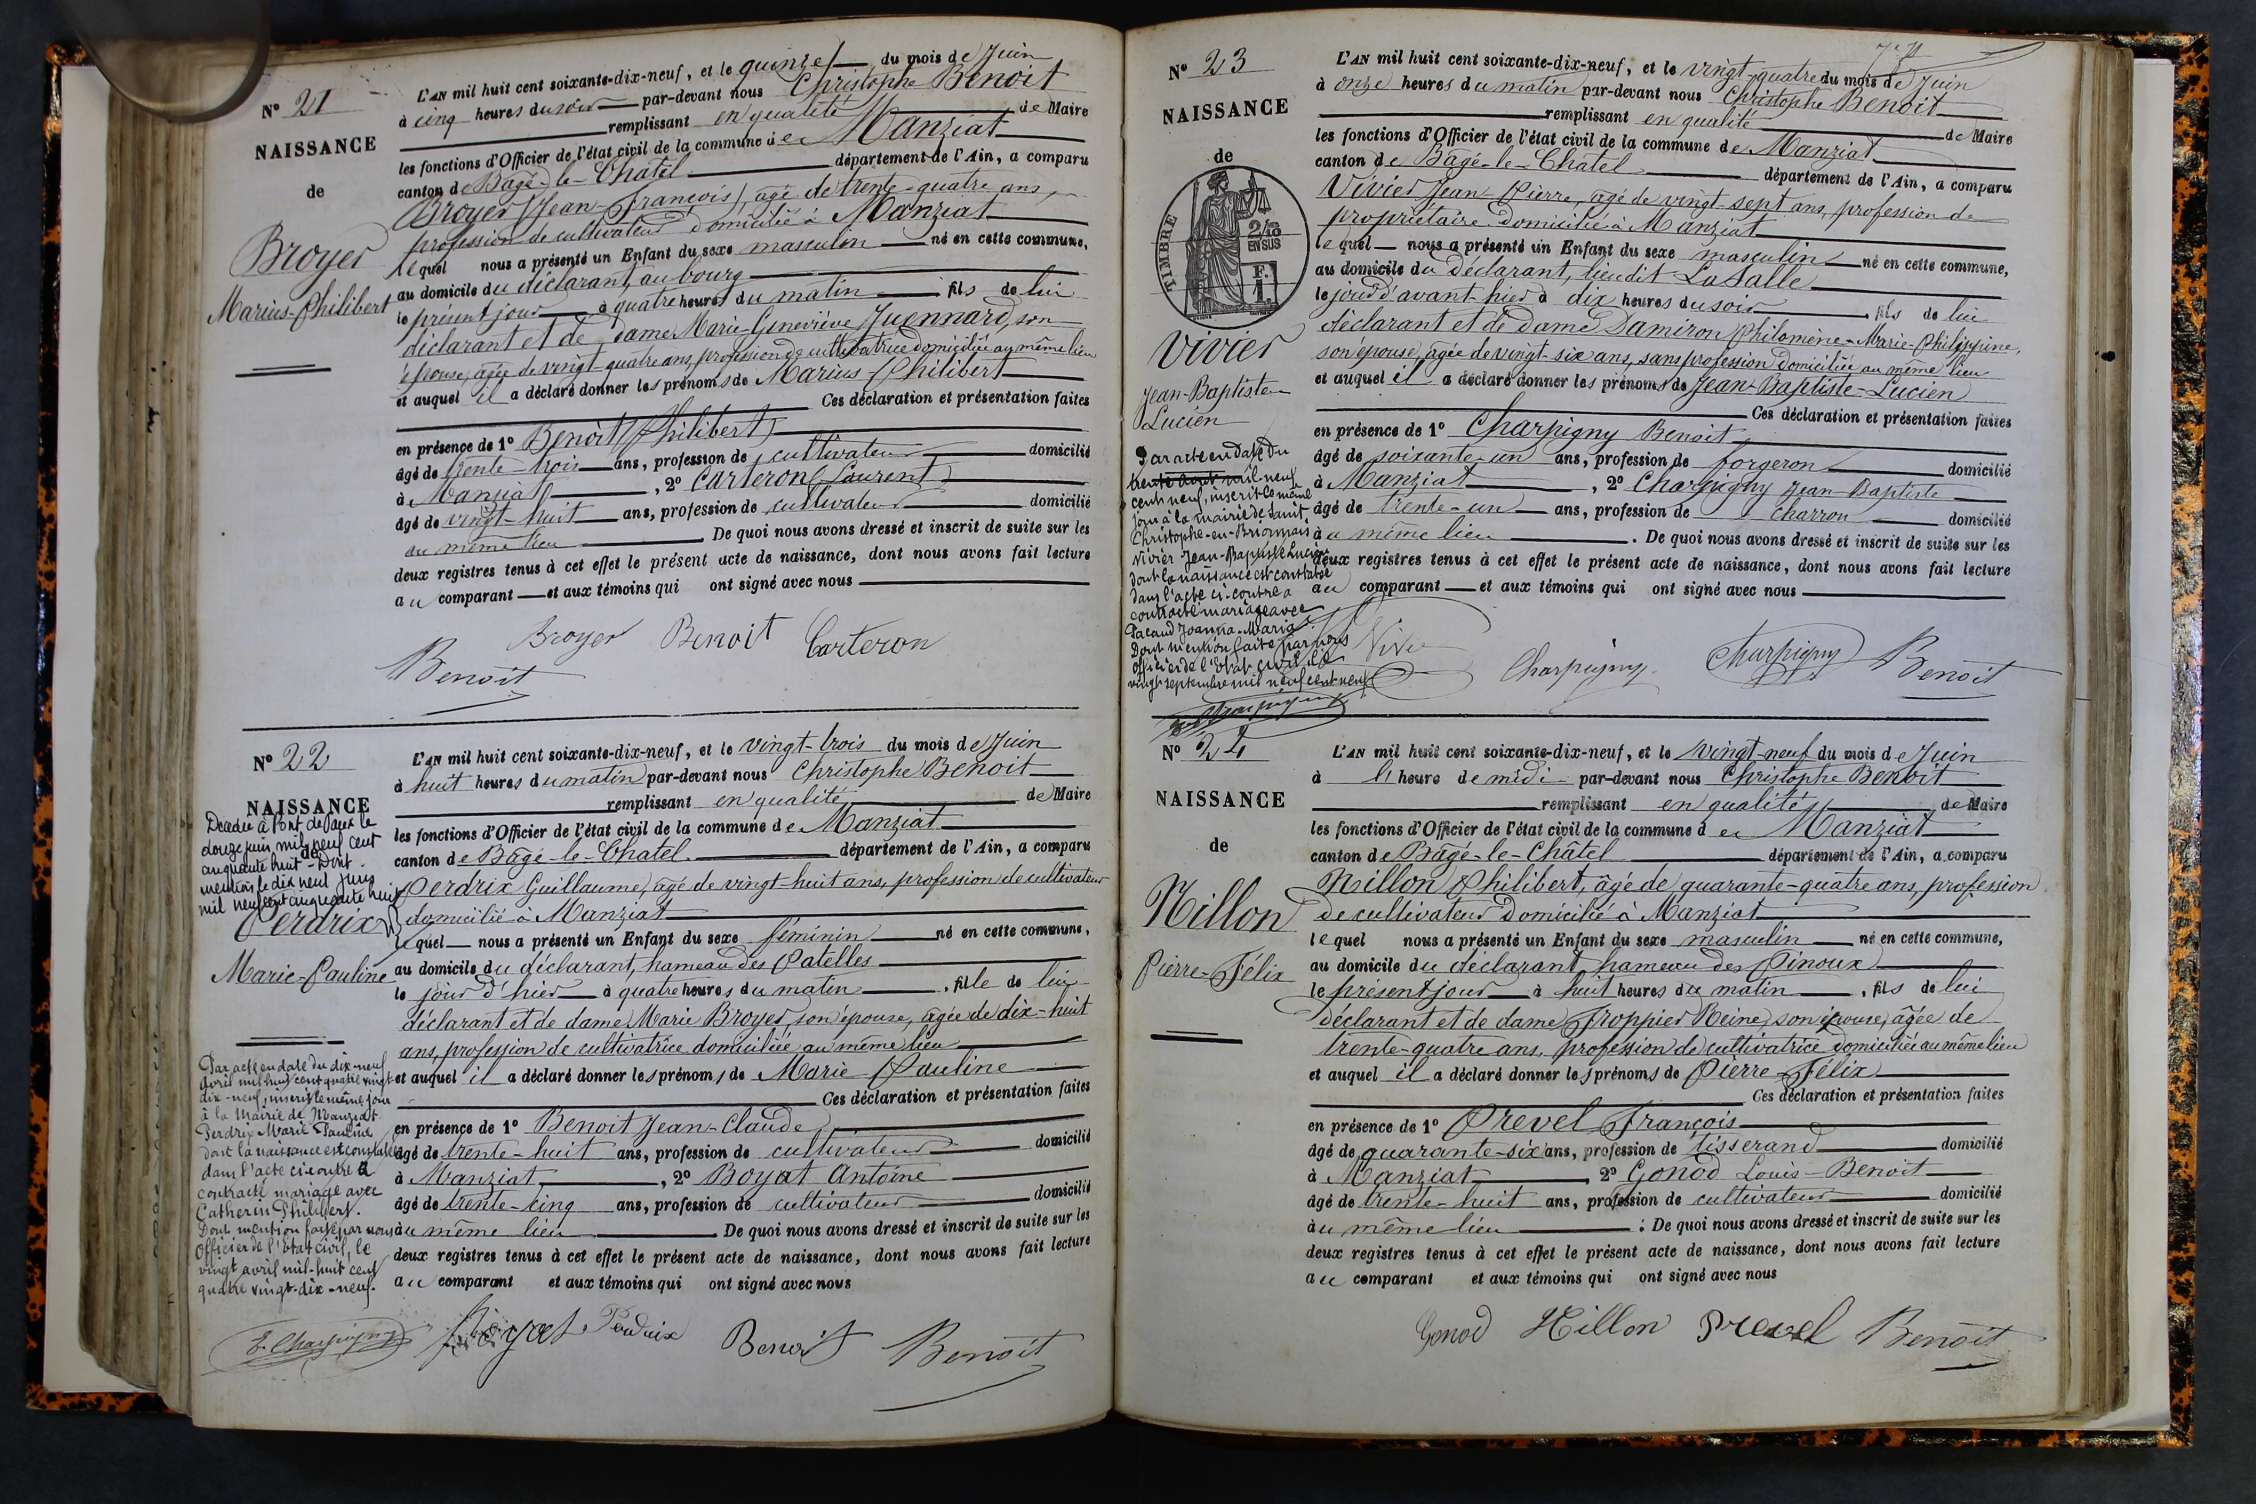 N° 21
NAISSANCE
de
Broyer
Marius-Philibert
L'AN mil huit cent soixante-dix-neuf, et le quinze du mois de Juin
à cinq heures du soir par-devant nous Christophe Benoit
remplissant en qualité de Maire
les fonctions d'Officier de l'état civil de la commune de Manziat
canton de Bagé-le-Chatel département de l'Ain, a comparu
Broyer (Jean-François), agé de trente-quatre ans,
profession de cultivateur domicilié à Manziat
lequel nous a présenté un Enfant du sexe masculin né en cette commune,
au domicile du déclarant, au bourg
le présent jour à quatre heures du matin fils de lui
déclarant et de dame Marie-Geneviève Juennard, son
épouse, agée de vingt-quatre ans, profession de cultivatrice domiciliée au même lieu
et auquel il a déclaré donner les prénoms de Marius-Philibert
Ces déclaration et présentation faites
en présence de 1° Benoit (Philibert)
âgé de trente-trois ans, profession de cultivateur domicilié
à Manziat, 2° Carteron (Laurent)
âgé de vingt-huit ans, profession de cultivateur domicilié
au même lieu De quoi nous avons dressé et inscrit de suite sur les
deux registres tenus à cet effet le présent acte de naissance, dont nous avons fait lecture
au comparant et aux témoins qui ont signé avec nous
Broyer Benoit Carteron
Benoit
N° 22
NAISSANCE
de
Décédée à Pont de Vaux le
douze juin mil neuf cent
cinquante huit - Dont
mention le dix neuf juin
mil neuf cent cinquante huit
Perdrix
Marie-Pauline
Par acte en date du dix-neuf
avril mil huit cent quatre vingt
dix-neuf, inscrit le même jour
à la Mairie de Manziat
Perdrix Marie Pauline
dont la naissance est constatée
dans l'acte ci-contre a
contracté mariage avec
Catherin Philibert.
Dont mention faite par nous
Officier de l'Etat civil, le
vingt avril mil-huit cent
quatre vingt-dix-neuf.
E. Charpigny
L'AN mil huit cent soixante-dix-neuf, et le vingt-trois du mois de Juin
à huit heures du matin par-devant nous Christophe Benoit
remplissant en qualité de Maire
les fonctions d'Officier de l'état civil de la commune de Manziat
canton de Bâgé-le-Chatel département de l'Ain, a comparu
Perdrix Guillaume, agé de vingt-huit ans, profession de cultivateur
domicilié à Manziat
lequel nous a présenté un Enfant du sexe féminin né en cette commune,
au domicile du déclarant, hameau des Patelles
le jour d'hier à quatre heures du matin, fille de lui
déclarant et de dame Marie Broyer son épouse, agée de dix-huit
ans, profession de cultivatrice domiciliée au même lieu
et auquel il a déclaré donner les prénoms de Marie-Pauline
Ces déclaration et présentation faites
en présence de 1° Benoit Jean-Claude
âgé de trente-huit ans, profession de cultivateur domicilié
à Manziat, 2° Boyat Antoine
âgé de trente-cinq ans, profession de cultivateur domicilié
au même lieu De quoi nous avons dressé et inscrit de suite sur les
deux registres tenus à cet effet le présent acte de naissance, dont nous avons fait lecture
au comparant et aux témoins qui ont signé avec nous
Boyat Perdrix Benoit Benoit
N° 23
NAISSANCE
de
TIMBRE
2/10
EN SUS
F.
1.
Vivier
Jean-Baptiste-
Lucien
Par acte en date du
trente août mil neuf
cent neuf, inscrit le même
jour à la mairie de Saint
Christophe-en-Brionnais
Vivier Jean-Baptiste Lucien
dont la naissance est constatée
dans l'acte ci-contre a
contracté mariage avec
Pacaud Joanna-Maria
Dont mention faite par nous
officier de l'Etat civil le
vingt septembre mil neuf cent neuf
L'AN mil huit cent soixante-dix-neuf, et le vingt-quatre du mois de Juin
à onze heures du matin par-devant nous Christophe Benoit
remplissant en qualité de Maire
les fonctions d'Officier de l'état civil de la commune de Manziat
canton de Bâgé-le-Châtel département de l'Ain, a comparu
Vivier Jean-Pierre, agé de vingt-sept ans, profession de
propriétaire domicilié à Manziat
lequel nous a présenté un Enfant du sexe masculin né en cette commune,
au domicile du déclarant, lieu dit La Salle
le jour d'avant-hier à dix heures du soir, fils de lui
déclarant et de dame Damiron Philomène-Marie-Philippine,
son épouse, agée de vingt-six ans, sans profession domiciliée au même lieu
et auquel il a déclaré donner les prénoms de Jean-Baptiste-Lucien
Ces déclaration et présentation faites
en présence de 1° Charpigny Benoit
âgé de soixante-un ans, profession de forgeron domicilié
à Manziat, 2° Charpigny Jean-Baptiste
âgé de trente-un ans, profession de charron domicilié
au même lieu. De quoi nous avons dressé et inscrit de suite sur les
deux registres tenus à cet effet le présent acte de naissance, dont nous avons fait lecture
au comparant et aux témoins qui ont signé avec nous
Vivier Charpigny Charpigny Benoit
N° 24
NAISSANCE
de
Nillon
Pierre-Félix
L'AN mil huit cent soixante-dix-neuf, et le vingt-neuf du mois de Juin
à l'heure de midi par-devant nous Christophe Benoit
remplissant en qualité de Maire
les fonctions d'Officier de l'état civil de la commune de Manziat
canton de Bâgé-le-Châtel département de l'Ain, a comparu
Nillon Philibert, âgé de quarante-quatre ans, profession
de cultivateur domicilié à Manziat
lequel nous a présenté un Enfant du sexe masculin né en cette commune,
au domicile du déclarant hameau des Pinoux
le présent jour à huit heures du matin, fils de lui
déclarant et de dame Froppier Reine, son épouse, âgée de
trente-quatre ans, profession de cultivatrice domiciliée au même lieu
et auquel il a déclaré donner les prénoms de Pierre-Félix
Ces déclaration et présentation faites
en présence de 1° Prevel François
âgé de quarante-six ans, profession de tisserand domicilié
à Manziat, 2° Gonod Louis-Benoit
âgé de trente-huit ans, profession de cultivateur domicilié
au même lieu : De quoi nous avons dressé et inscrit de suite sur les
deux registres tenus à cet effet le présent acte de naissance, dont nous avons fait lecture
au comparant et aux témoins qui ont signé avec nous
Gonod Nillon Prevel Benoit